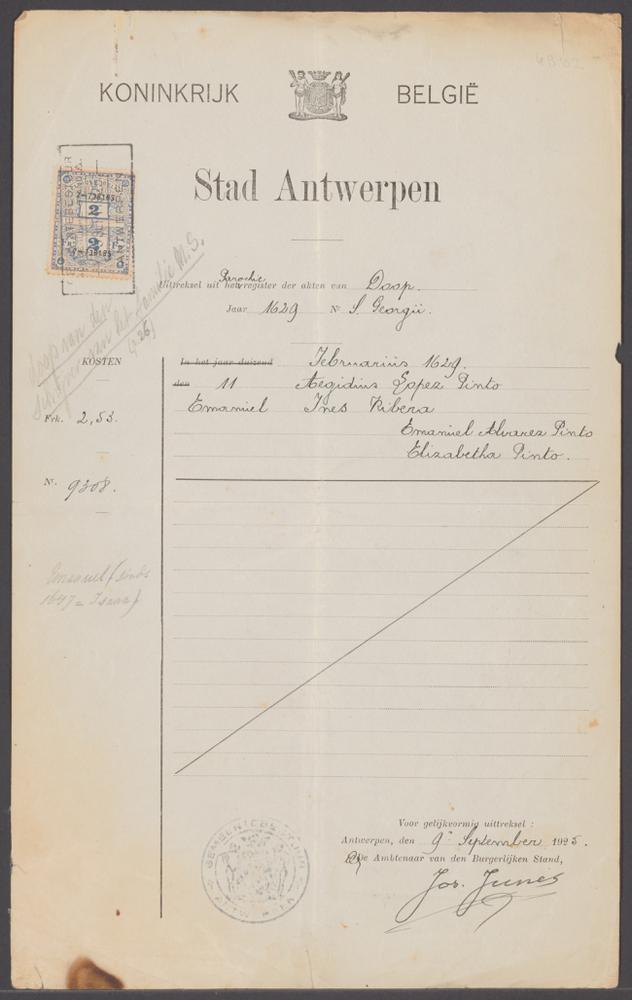 KONINKRIJK BELGIË
Stad Antwerpen
Parochie
Uittreksel uit het register der akten van Doop.
Jaar 1629 Nr S. Georgii.
doop van den
schrijver van het familie M.S.
KOSTEN
In het jaar duizend Februarius 1629.
den 11 Aegidius Lopez Pinto
Emanuel Ines Ribera
Frk. 2,53.
Emanuel Alvarez Pinto
Elizabetha Pinto.
Nr. 9308.
Emanuel (sinds
1647 = Isaac)
Voor gelijkvormig uittreksel :
Antwerpen, den 9n September 1925.
De Ambtenaar van den Burgerlijken Stand,
GEMEENTEBESTUUR
ANTWERPEN
2
2